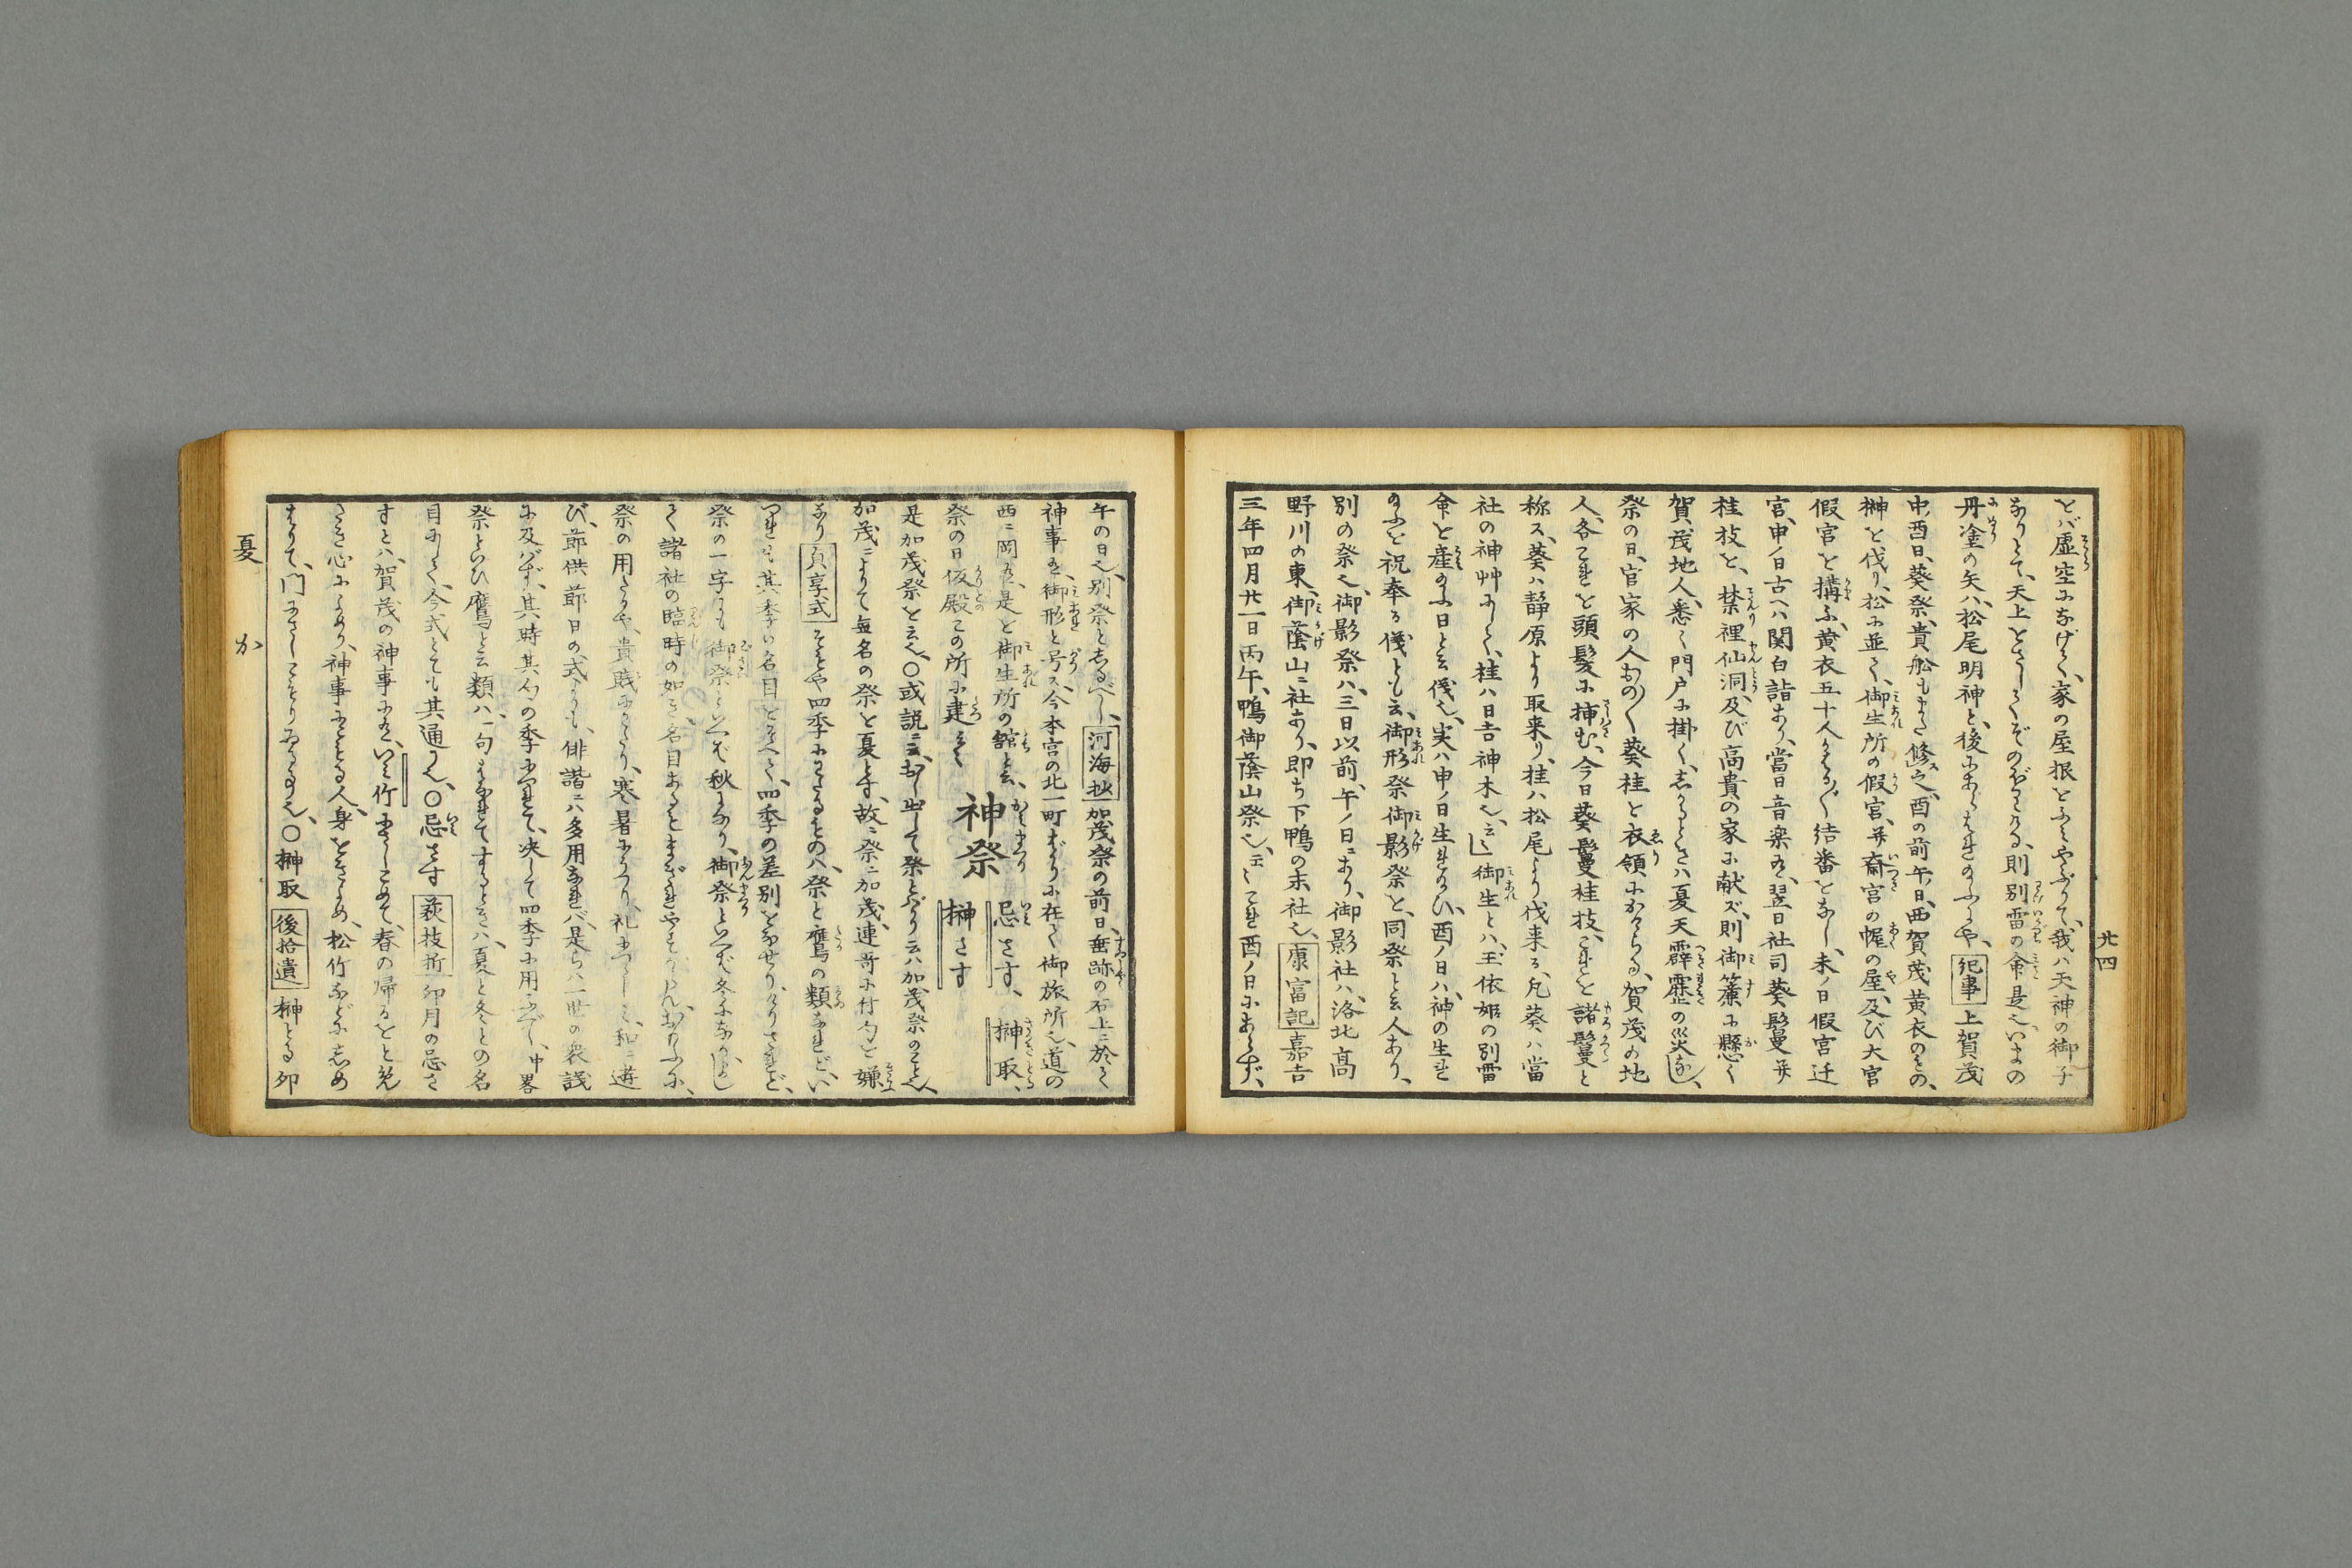 とバ虚空になげく、家の屋根をふみやぶりて、我ハ天神の御子
なりとて、天上をさしてぞのぼりける、則別雷の命是也、いまの
丹塗の矢ハ、松尾明神と、後にあらはれ給ふとや、紀事上賀茂
中酉日、葵祭、貴舩もまた修之、酉の前午日、西賀茂黄衣のもの、
榊を伐り、松に並て、御生所の假宮、并斎宮の幄の屋、及び大宮
假宮を搆ふ、黄衣五十人かはる〴〵結番をなし、未ノ日假宮迁
宮、申ノ日古へハ関白詣あり、當日音楽有、翌日社司葵鬘并
桂枝を、禁裡仙洞、及び高貴の家に献ズ、則御簾に懸く
賀茂地人、悉く門戸に掛く、しかるときハ夏天霹靂の災なし、
祭の日、官家の人おの〳〵葵桂を衣領にかくる、賀茂の地
人、各これを頭髪に挿む、今日葵鬘桂枝、これを諸鬘と
称ス、葵ハ静原より取来り、桂ハ松尾より伐来る、凡葵ハ當
社の神艸にして、桂ハ日吉神木也、云云」御生とハ、玉依姫の別雷
命を産給ふ日と云儀也、実ハ申ノ日生れ給ひ、酉ノ日ハ、神の生れ
給ふを祝奉る儀とも云、御形祭御影祭と、同祭と云人あり、
別の祭也、御影祭ハ、三日以前、午ノ日ニあり、御影社ハ、洛北高
野川の東、御蔭山ニ社あり、即ち下鴨の末社也、康富記嘉吉
三年四月廿一日丙午、鴨御蔭山祭也、云々これ酉ノ日にあらず、
廿四
午の日也、別祭としるべし、河海抄加茂祭の前日、垂跡の石上ニ於て
神事有、御形と号ス、今本宮の北一町ばかりに在て御旅所也、道の
西ニ岡有、是を御生所の舘と云、
祭の日仮殿この所に建る也
神祭 忌さす、榊取、榊さす
是加茂祭を云也、〇或説ニ云、おし出して祭とばかり云ハ加茂祭のこと也、
加茂ニよりて無名の祭を夏とす、故ニ祭ニ加茂、連哥に付句を嫌
なり貞享式そもや四季にわたるものハ、祭と鷹の類なれど、い
づれも其季の名目をそへて、四季の差別をなせり、しかりされど、
祭の一字にも御祭といへば秋になり、御祭といへば冬になるよし
て諸社の臨時の如き名目あるをまぎれやすからん、おもふに、
祭の用たるや、貴賎にわたり、寒暑にうつり、礼にいたし、和ニ遊
び、節供節日の式よりも、俳諧ニハ多用なれバ、是らハ一世の衆議
に及バず、其時其句の季につれて、决して四季に用ふべし、中畧
祭といひ鷹と云類ハ、一句はなれてするときハ、夏と冬との名
目にして、今式とても其通り也、〇忌さす萩枝折卯月の忌さ
すとハ、賀茂の神事に有、いミ竹さしこめて、春の帰るをと兇
さき心によめり、神事にもとる人、身をきよめ、松竹などにしめ
はりて、門にさしこもりゐる事也、〇榊取後拾遺榊とる卯
夏 か